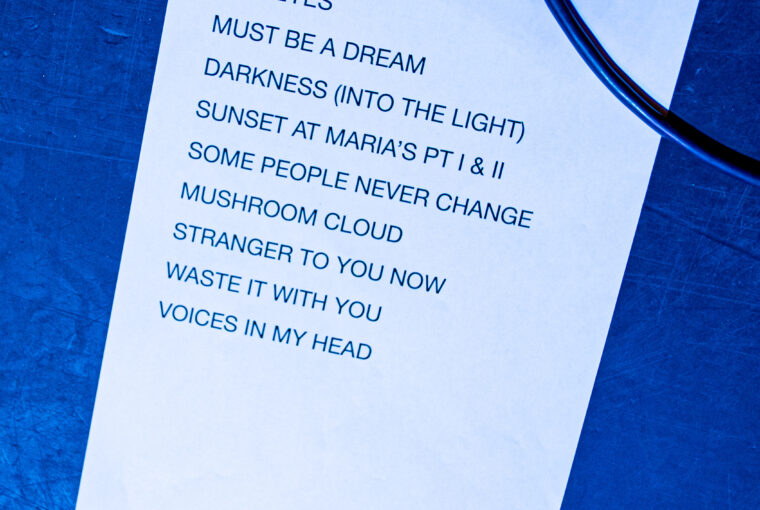 MUST BE A DREAM
DARKNESS (INTO THE LIGHT)
SUNSET AT MARIA'S PT I & II
SOME PEOPLE NEVER CHANGE
MUSHROOM CLOUD
STRANGER TO YOU NOW
WASTE IT WITH YOU
VOICES IN MY HEAD